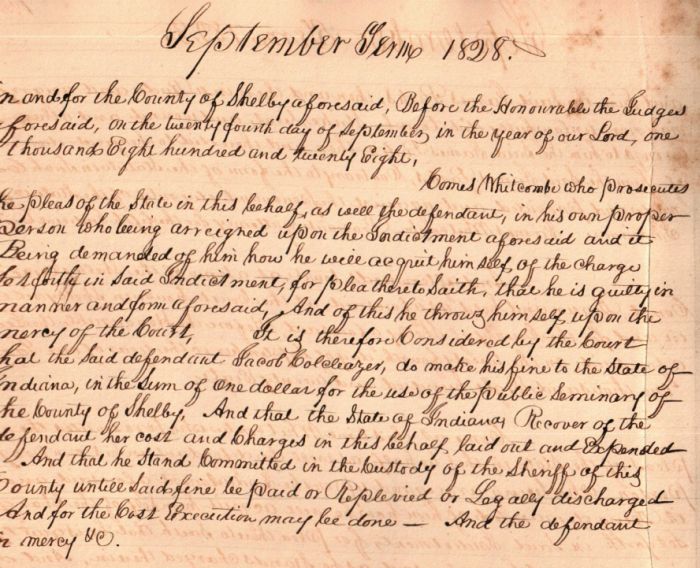 September Term 1828.
in and for the County of Shelby aforesaid, Before the Honourable the Judges
aforesaid, on the twenty fourth day of September, in the year of our Lord, one
thousand Eight hundred and twenty Eight,
Comes Whitcombe who prosecutes
he pleas of the State in this behalf, as well the defendant, in his own proper
person who being arreigned upon the Indictment aforesaid and it
Being demanded of him how he will acquit himself of the charge
forth in said Indictment, for plea thereto Saith, that he is guilty in
manner and form aforesaid, And of this he throws himself upon the
mercy of the Court, It is therefore Considered by the Court
hat the said defendant Jacob Colcleazer, do make his fine to the State of
Indiana, in the Sum of one dollar for the use of the public Seminary of
he County of Shelby, And that the State of Indiana, Recover of the
defendant her cost and Charges in this behalf laid out and Expended
And that he Stand Committed in the Custody of the Sheriff of this
County untill said fine be paid or Replevied or Legally discharged
And for the Cost Execution may be done — And the defendant
in mercy &c.